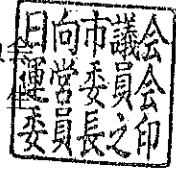 日向市議会
運営委員会
委員長之印